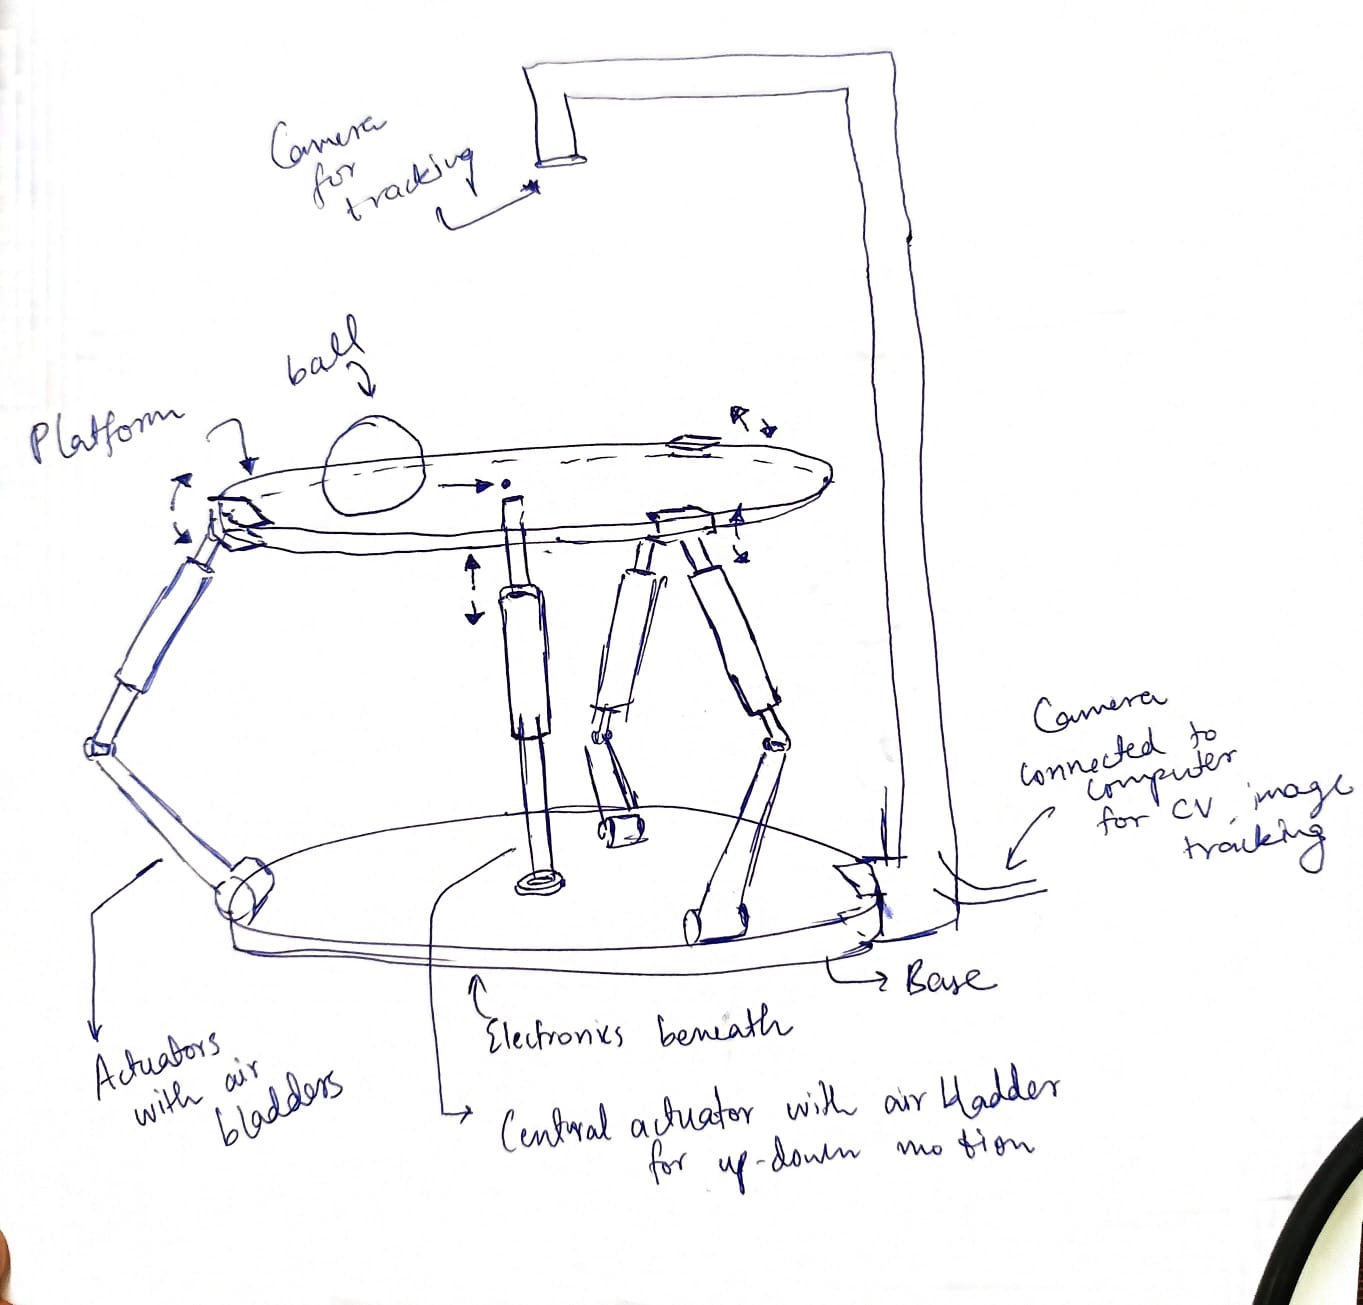 Camera
for
tracking
ball
Platform
Camera
connected to
computer
for CV image
tracking
Base
Electronics beneath
Actuators
with air
bladders
Central actuator with air bladder
for up-down motion